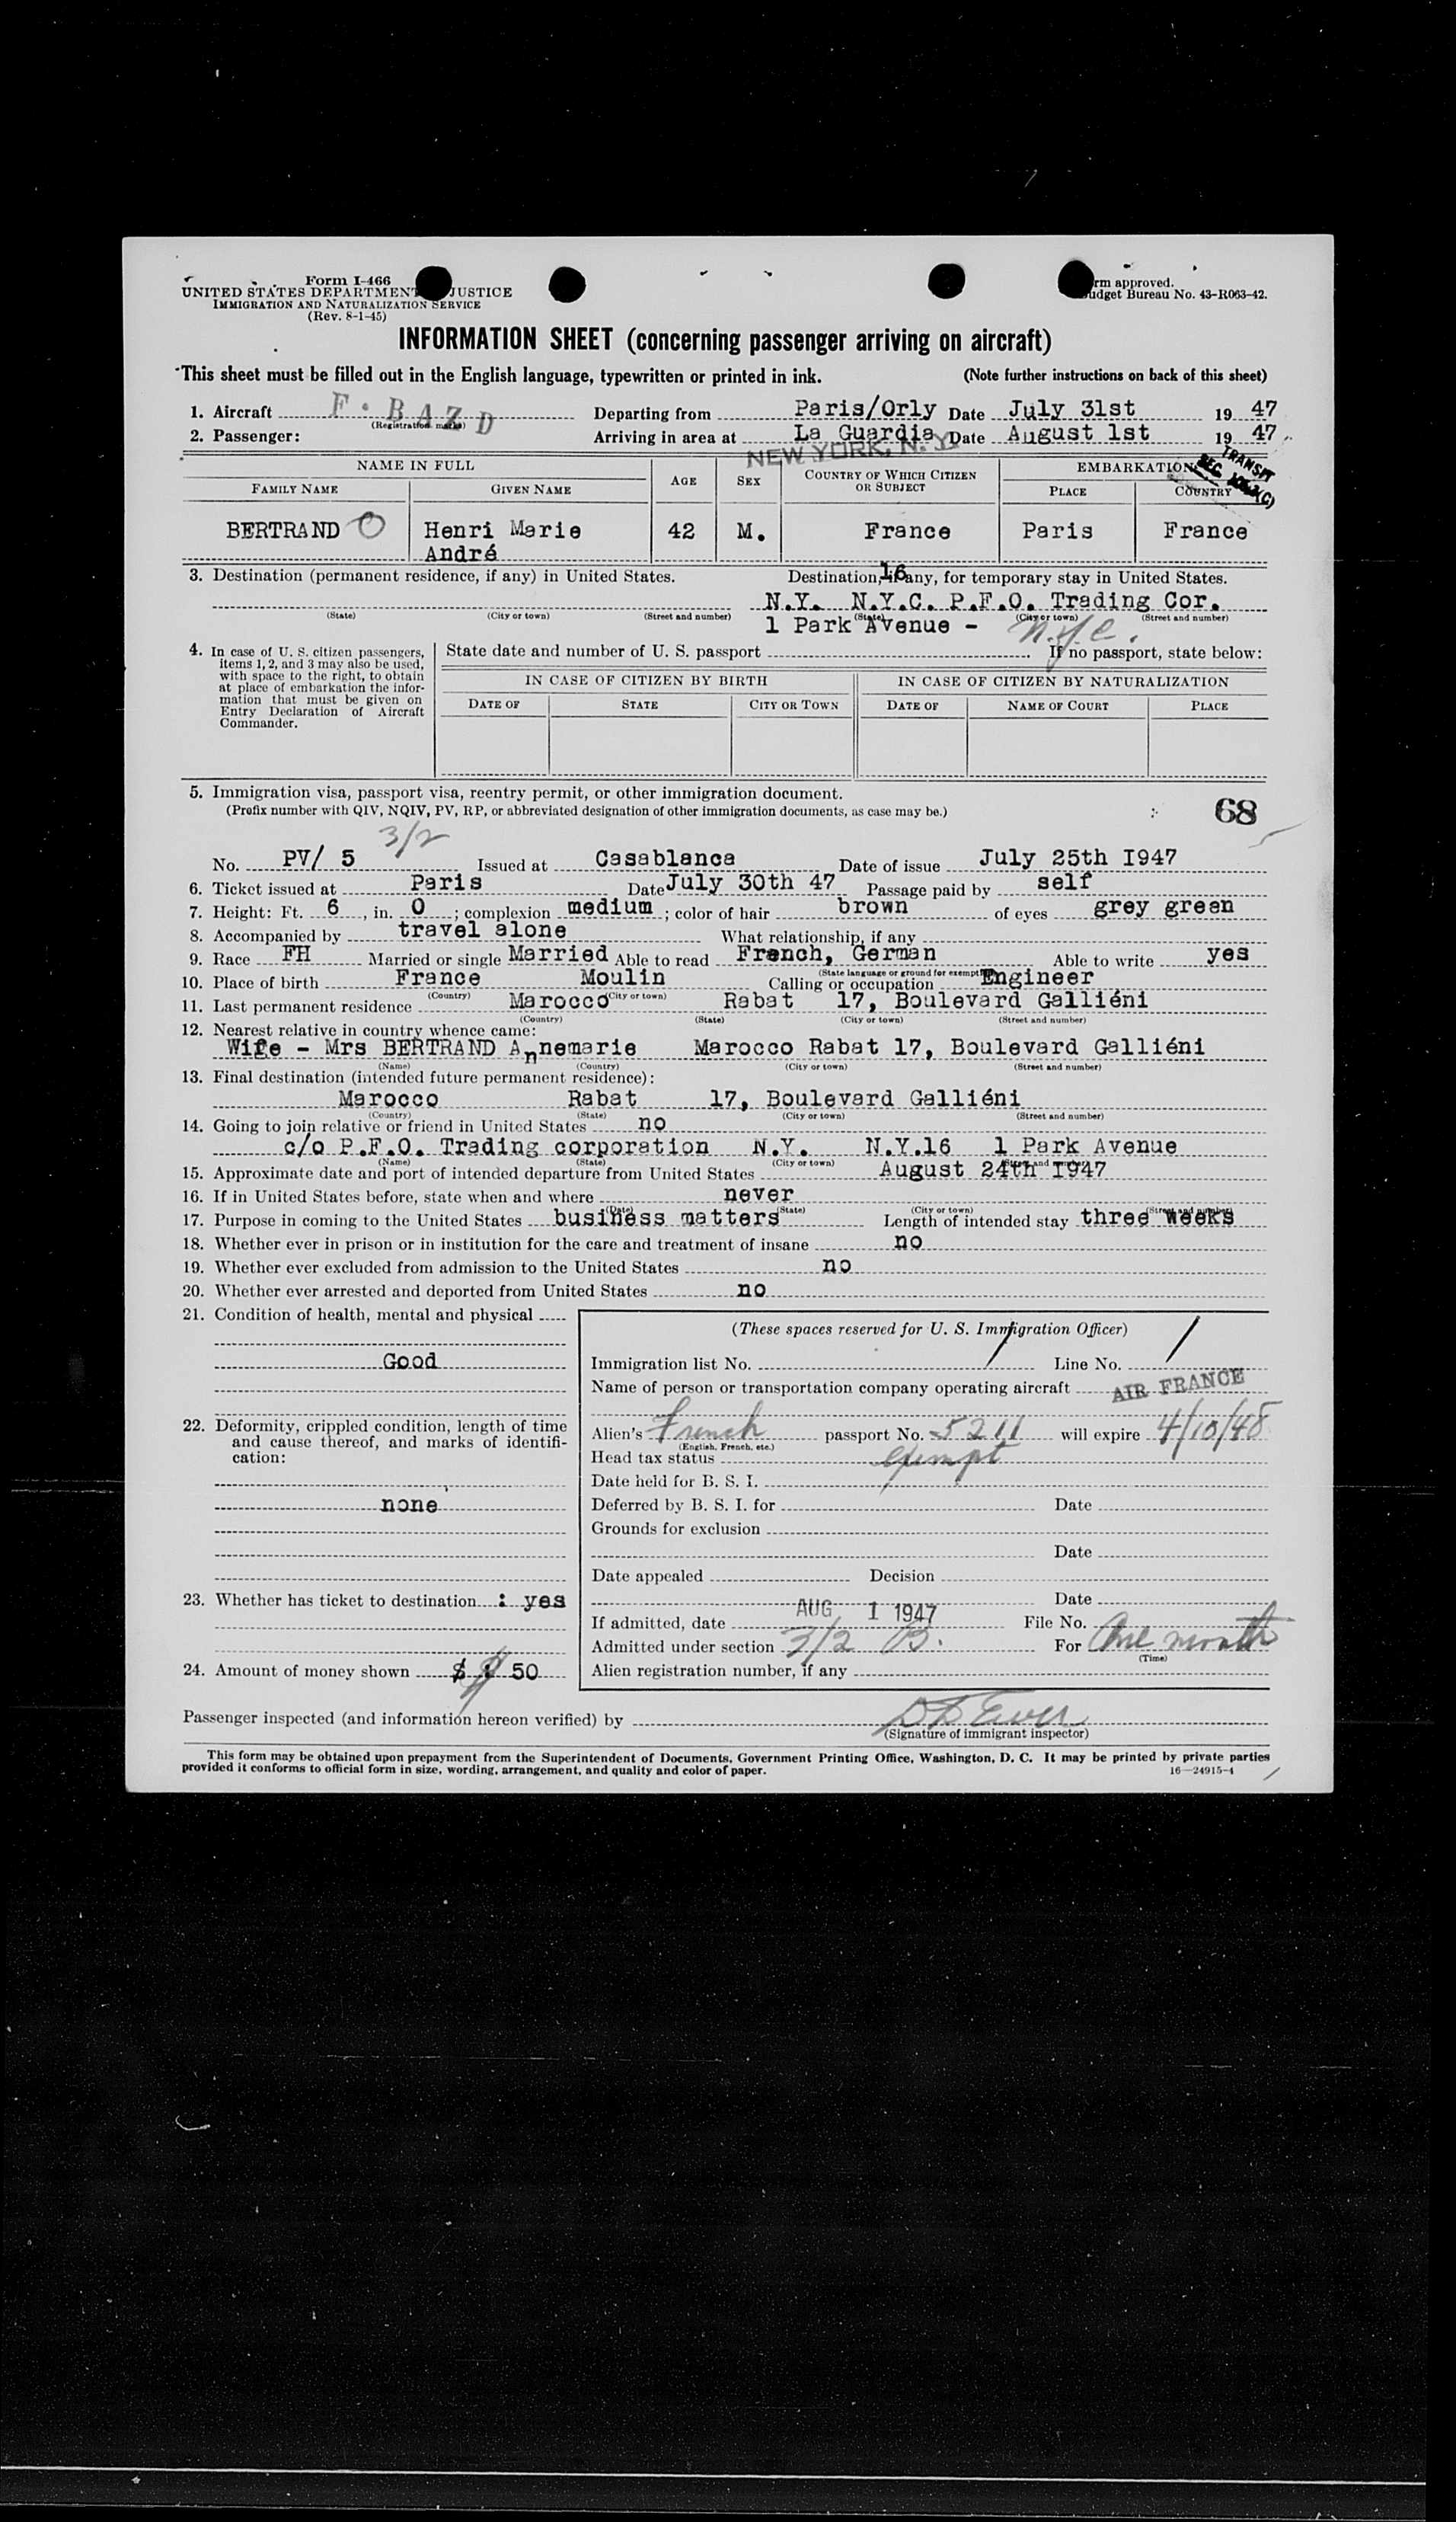 Form I-466
UNITED STATES DEPARTMENT JUSTICE
IMMIGRATION AND NATURALIZATION SERVICE
(Rev. 8-1-45)
rm approved.
udget Bureau No. 43-R063-42.
INFORMATION SHEET (concerning passenger arriving on aircraft)
This sheet must be filled out in the English language, typewritten or printed in ink. (Note further instructions on back of this sheet)
1. Aircraft F. BAZD Departing from Paris/Orly Date July 31st 1947
(Registration marks)
2. Passenger: Arriving in area at La Guardia Date August 1st 1947
NEW YORK, N. Y.
TRANSIT
SEC.
NAME IN FULL AGE SEX COUNTRY OF WHICH CITIZEN OR SUBJECT EMBARKATION
FAMILY NAME GIVEN NAME PLACE COUNTRY
BERTRAND Henri Marie 42 M. France Paris France
André
3. Destination (permanent residence, if any) in United States. Destination, if any, for temporary stay in United States.
16
N.Y. N.Y.C. P.F.O. Trading Cor.
(State) (City or town) (Street and number) (State) (City or town) (Street and number)
1 Park Avenue - N.Y.C.
4. In case of U. S. citizen passengers, items 1, 2, and 3 may also be used, with space to the right, to obtain at place of embarkation the information that must be given on Entry Declaration of Aircraft Commander.
State date and number of U. S. passport If no passport, state below:
IN CASE OF CITIZEN BY BIRTH IN CASE OF CITIZEN BY NATURALIZATION
DATE OF STATE CITY OR TOWN DATE OF NAME OF COURT PLACE
5. Immigration visa, passport visa, reentry permit, or other immigration document.
(Prefix number with QIV, NQIV, PV, RP, or abbreviated designation of other immigration documents, as case may be.)
68
3/2
No. PV/ 5 Issued at Casablanca Date of issue July 25th I947
6. Ticket issued at Paris Date July 30th 47 Passage paid by self
7. Height: Ft. 6, in. 0; complexion medium; color of hair brown of eyes grey green
8. Accompanied by travel alone What relationship, if any
9. Race FH Married or single Married Able to read French, German Able to write yes
(State language or ground for exemption)
10. Place of birth France Moulin Calling or occupation Engineer
(Country) (City or town)
11. Last permanent residence Marocco Rabat 17, Boulevard Galliéni
(Country) (State) (City or town) (Street and number)
12. Nearest relative in country whence came:
Wife - Mrs BERTRAND Annemarie Marocco Rabat 17, Boulevard Galliéni
(Name) (Country) (City or town) (Street and number)
13. Final destination (intended future permanent residence):
Marocco Rabat 17, Boulevard Galliéni
(Country) (State) (City or town) (Street and number)
14. Going to join relative or friend in United States no
c/o P.F.O. Trading corporation N.Y. N.Y.16 1 Park Avenue
(Name) (State) (City or town) (Street and number)
15. Approximate date and port of intended departure from United States August 24th I947
16. If in United States before, state when and where never
(Date) (State) (City or town) (Street and number)
17. Purpose in coming to the United States business matters Length of intended stay three weeks
18. Whether ever in prison or in institution for the care and treatment of insane no
19. Whether ever excluded from admission to the United States no
20. Whether ever arrested and deported from United States no
21. Condition of health, mental and physical
Good
22. Deformity, crippled condition, length of time and cause thereof, and marks of identification:
none
23. Whether has ticket to destination : yes
24. Amount of money shown $ : 50
(These spaces reserved for U. S. Immigration Officer)
Immigration list No. 1 Line No. 1
Name of person or transportation company operating aircraft AIR FRANCE
Alien's French passport No. 5211 will expire 4/10/48
(English, French, etc.)
Head tax status exempt
Date held for B. S. I.
Deferred by B. S. I. for Date
Grounds for exclusion
Date
Date appealed Decision
Date
If admitted, date AUG 1 1947 File No.
Admitted under section 3/2 B. For One month
(Time)
Alien registration number, if any
Passenger inspected (and information hereon verified) by
(Signature of immigrant inspector)
This form may be obtained upon prepayment from the Superintendent of Documents, Government Printing Office, Washington, D. C. It may be printed by private parties
provided it conforms to official form in size, wording, arrangement, and quality and color of paper. 16—24915-4